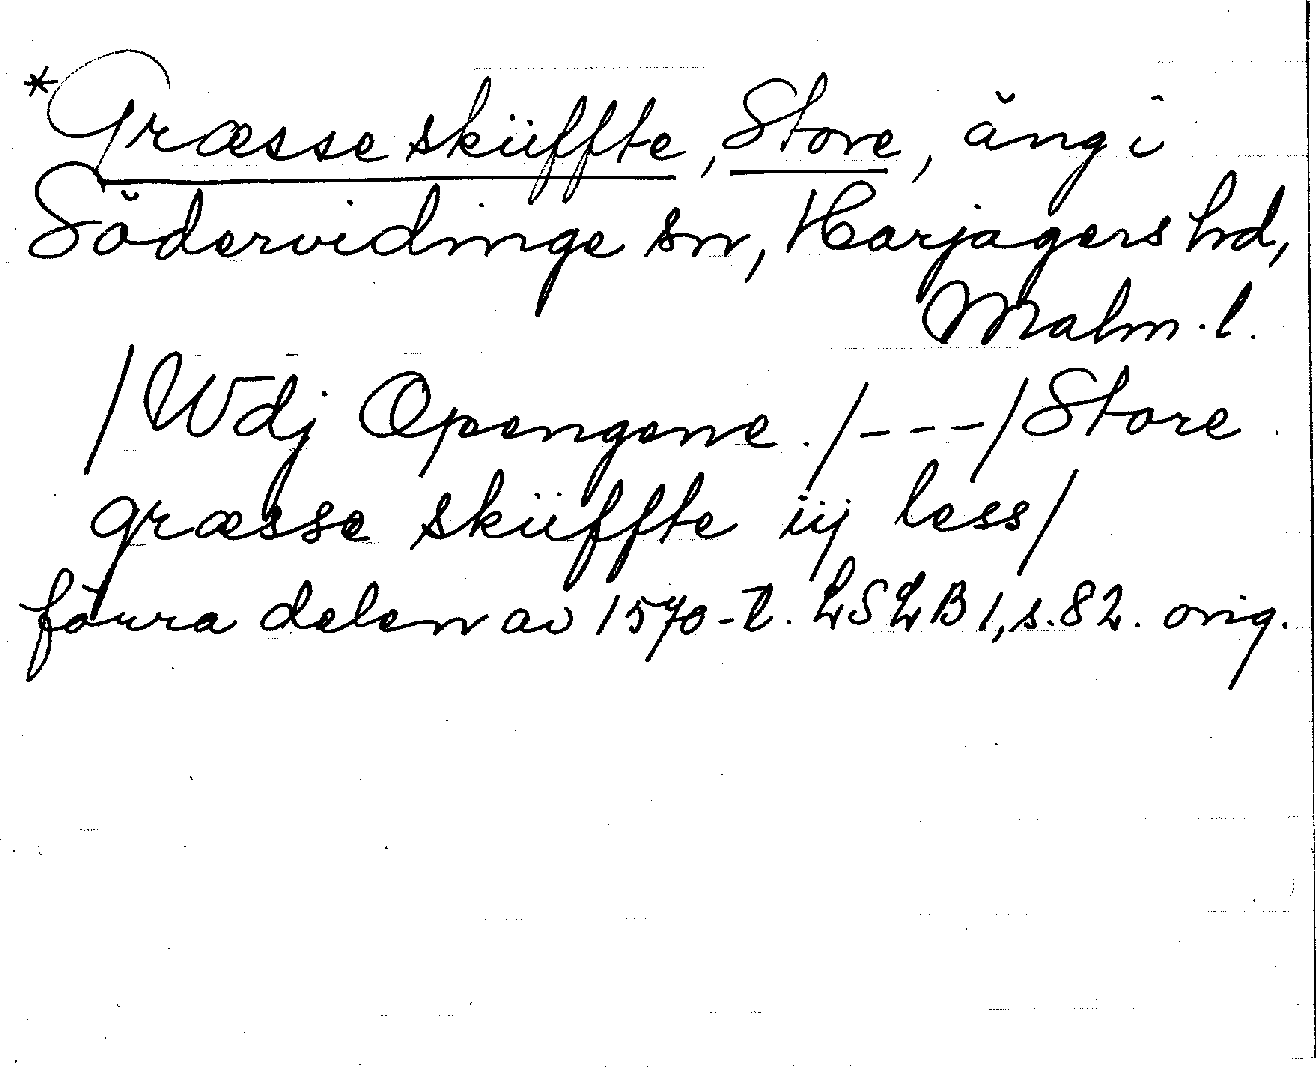 *Græsse skiiffte, Store, äng i
Södervidinge sn, Harjagers hd,
Malm.l.
/Wdj Opengene./---/Store
græsse skiiffte iij less/
förra delen av 1570-t. LSLB 1, s.82. orig.